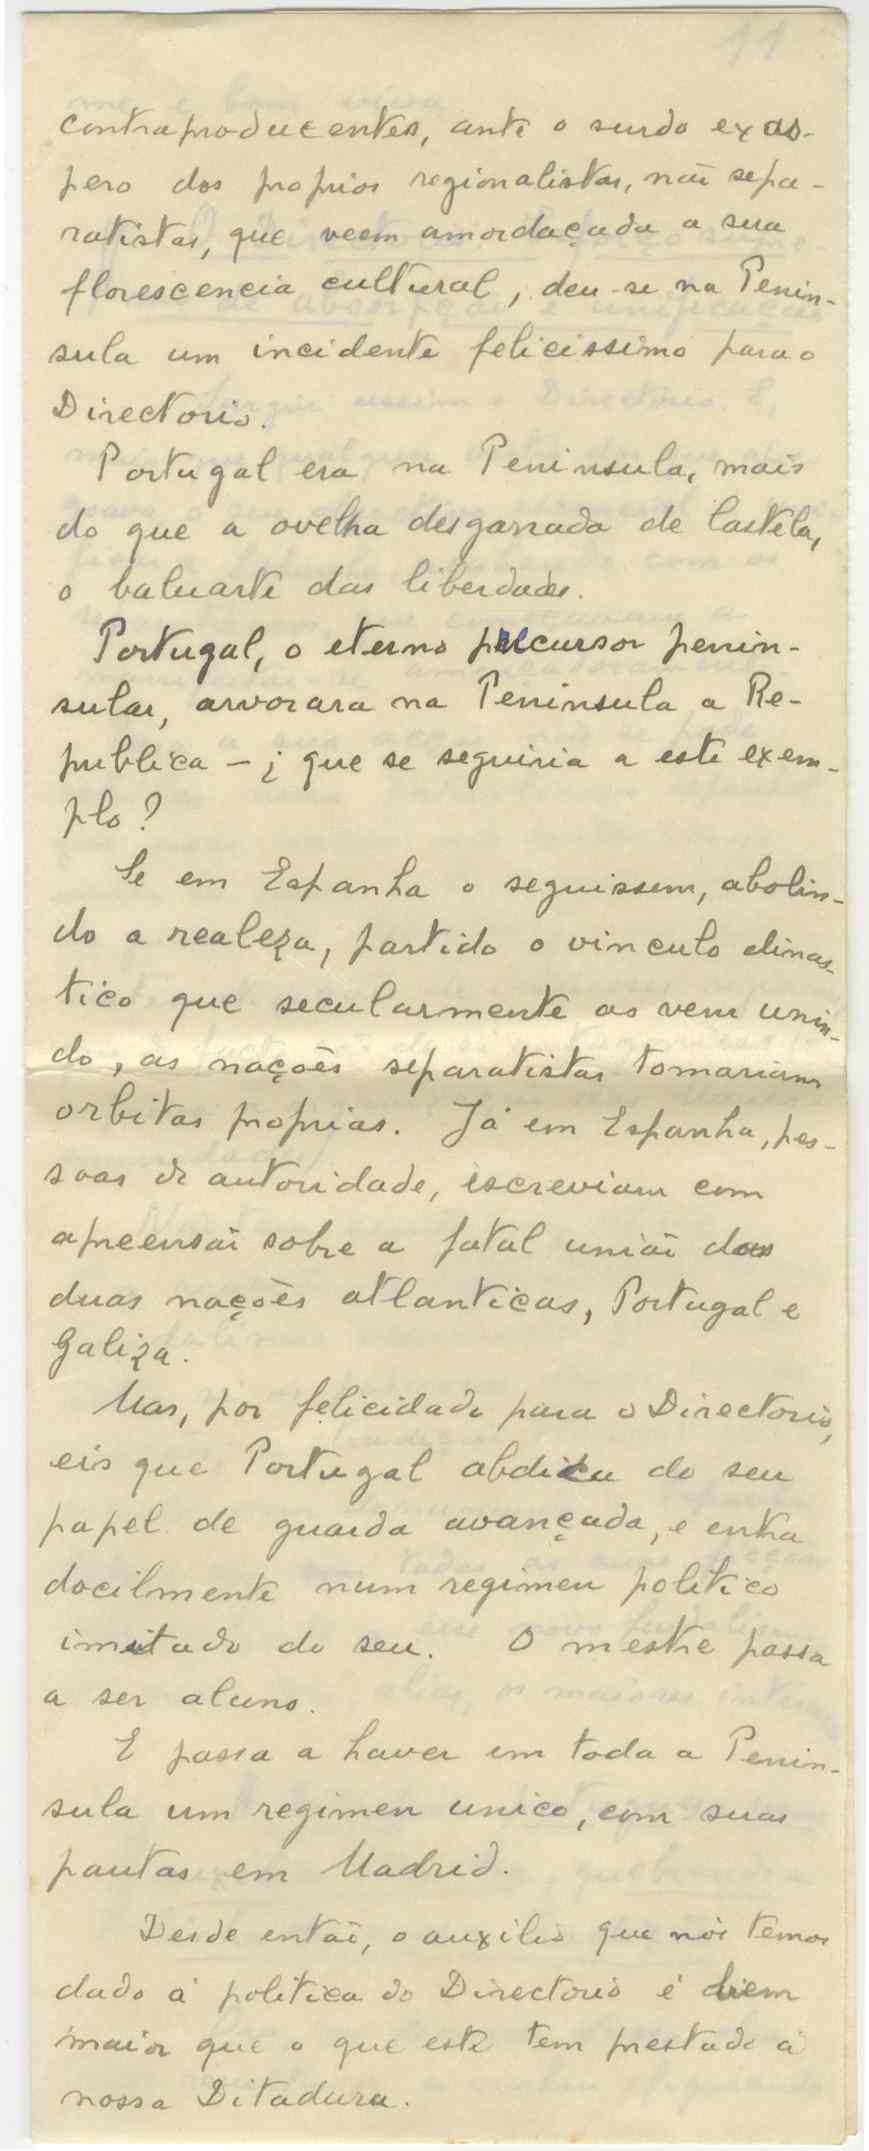 11
contraproducentes, ante o surdo exas-
pero dos proprios regionalistas, não sepa-
ratistas, que veem amordaçada a sua
florescencia cultural, deu-se na Penin-
sula um incidente felicissimo para o
Directorio.
Portugal era na Peninsula, mais
do que a ovelha desgarrada de Castela,
o baluarte das liberdades.
Portugal, o eterno precursor penin-
sular, arvorara na Peninsula a Re-
publica - ¿ que se seguiria a este exem-
plo?
Se em Espanha o seguissem, abolin-
do a realeza, partido o vinculo dinas-
tico que secularmente as vem unin-
do, as nações separatistas tomariam
orbitas proprias. Já em Espanha, pes-
soas de autoridade, escreviam com
apreensão sobre a fatal união das
duas nações atlanticas, Portugal e
Galiza.
Mas, por felicidade para o Directorio,
eis que Portugal abdica do seu
papel de guarda avançada, e entra
docilmente num regimen politico
imitado do seu. O mestre passa
a ser aluno.
E passa a haver em toda a Penin-
sula um regimen unico, com suas
pautas em Madrid.
Desde então, o auxilio que nós temos
dado á politica do Directorio é bem
maior que o que este tem prestado á
nossa Ditadura.